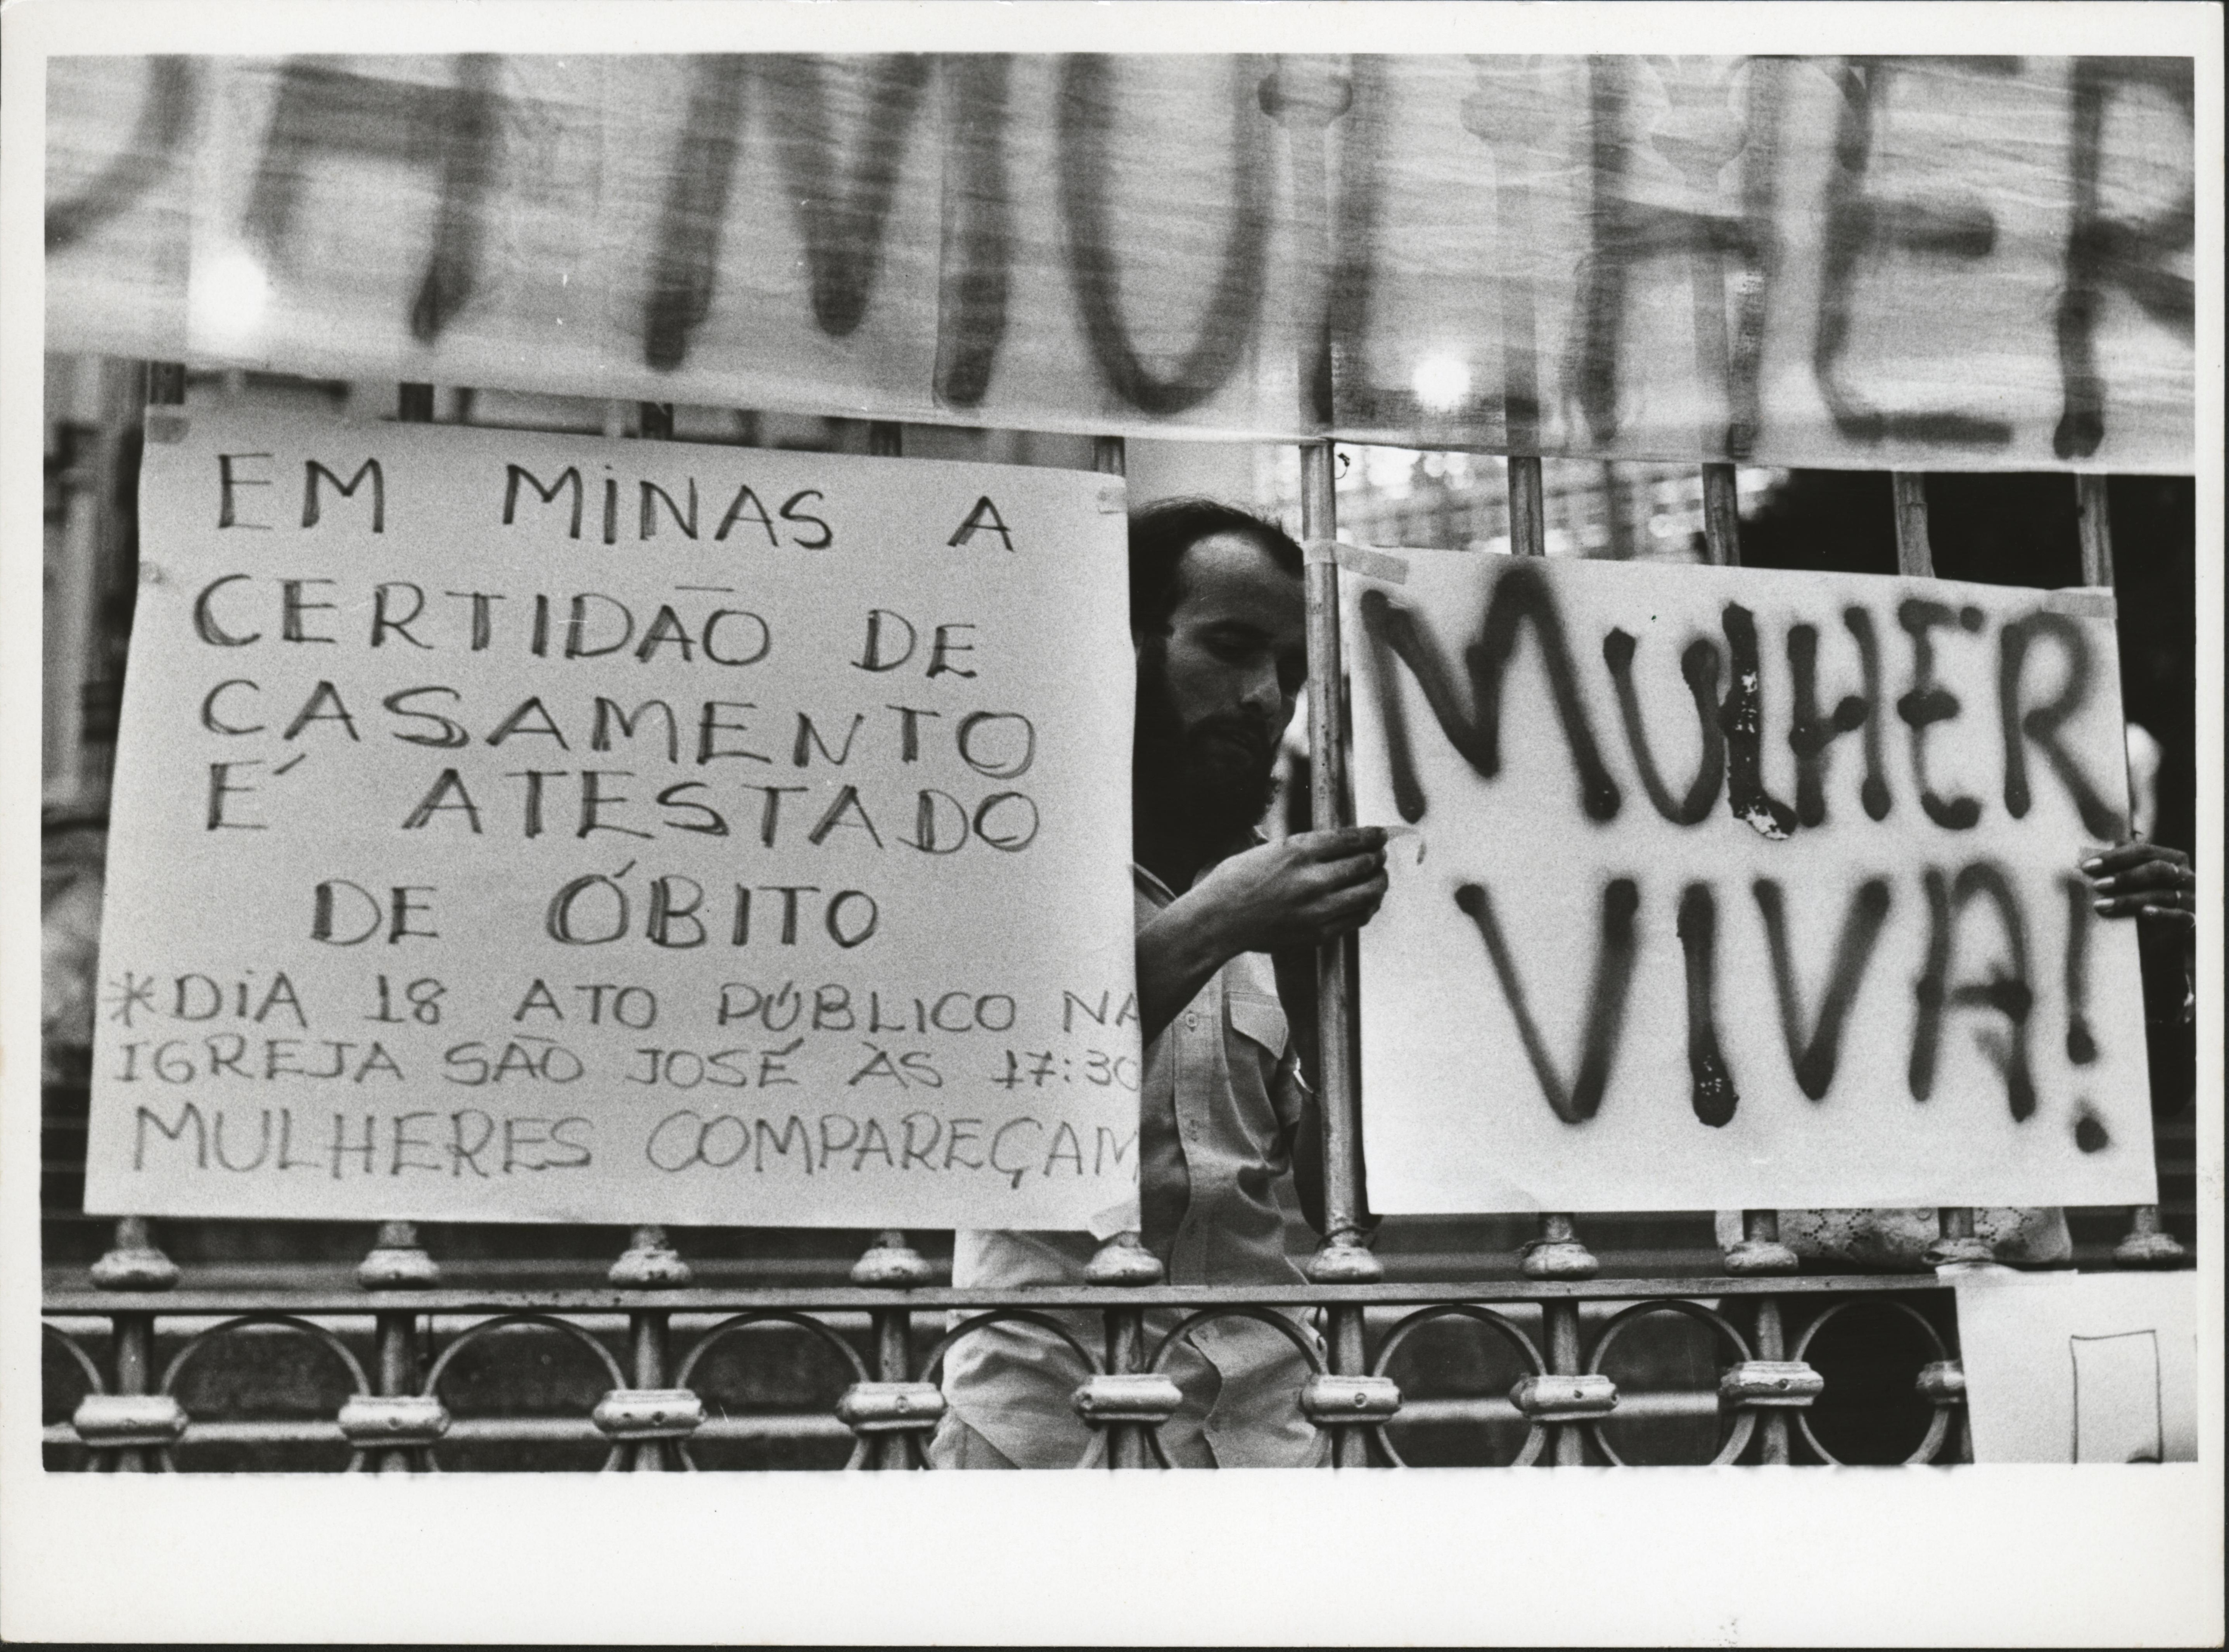 DA MULHER
EM MINAS A
CERTIDÃO DE
CASAMENTO
É ATESTADO
DE ÓBITO
*DIA 18 ATO PÚBLICO NA
IGREJA SÃO JOSÉ ÀS 17:30
MULHERES COMPAREÇAM
MULHER
VIVA!